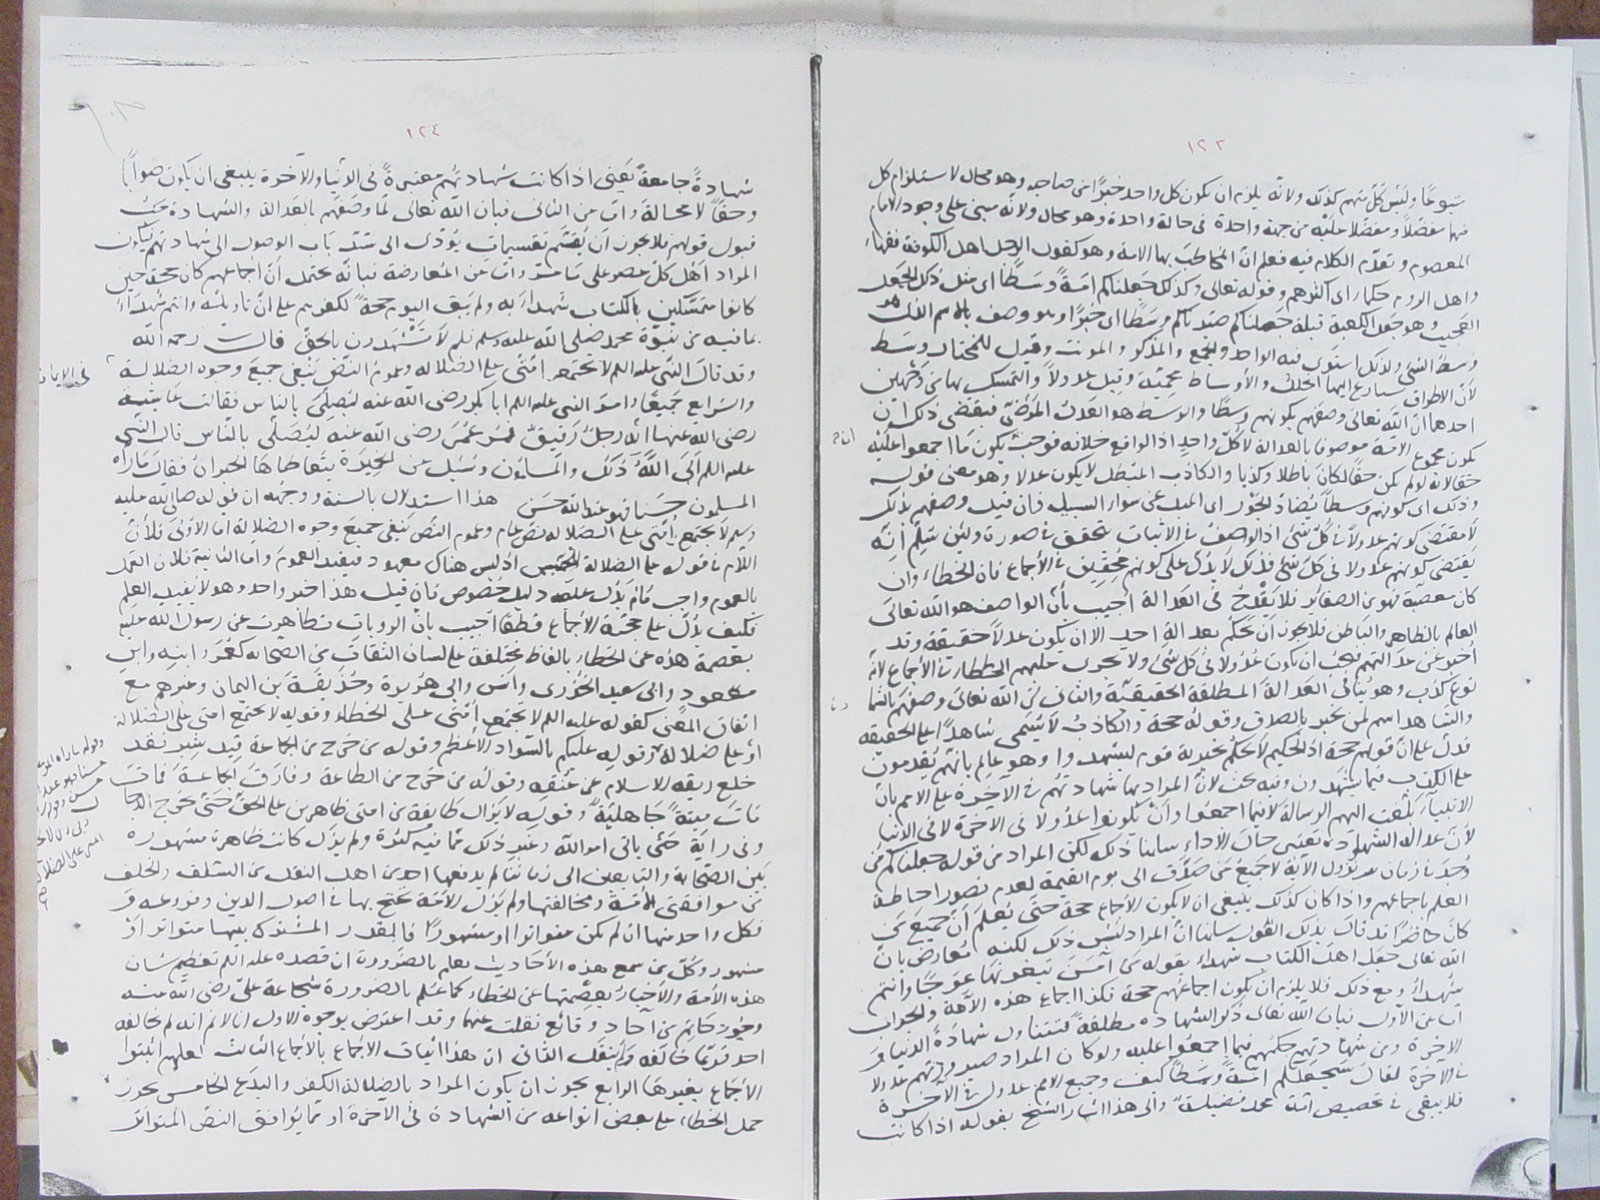 ١٢٣
متبوعًا وليس كل منهم كذلك ولانه يلزم ان يكون كل واحد خيرًا من صاحبه وهو محال لاستلزام كل
منهما مفضلًا ومفضلًا عليه من جهة واحدة في حالة واحدة وهو محال ولانه مبني على وجود الامام
المعصوم وتقدم الكلام فيه فعلم ان المخاطب بها الامة وهو كقول الرجل اهل الكوفة فقهاء
واهل الروم حكماء اى اكثرهم وقوله تعالى وكذلك جعلناكم امة وسطًا اى مثل ذلك الجعل
العجيب وهو جعل الكعبة قبلة جعلناكم وسطًا اى خيرًا وهو وصف بالاسم الذى هو
وسط الشئ ولذلك استوى فيه الواحد والجمع والمذكر والمونث وقيل للخيار وسط
لأن الاطراف يتسارع اليها الخلل والأوساط محمية وقيل عدولًا والتمسك بها من وجهين
احدهما ان الله تعالى وصفهم بكونهم وسطًا والوسط هو العدل المرضى فيقتضى ذلك ان
يكون مجموع الامة موصوفا بالعدالة لا كل واحد اذ الواقع خلافه فوجب ان يكون ما اجمعوا عليه
حقا لانه لو لم يكن حقا لكان باطلا وكذبا والكاذب المبطل لا يكون عدلا وهو معنى قوله
وذلك اى كونهم وسطًا يضاد الجور اى الميل عن سواء السبيل فان قيل وصفهم بذلك
لا يقتضى كونهم عدولا في كل شئ اذ الوصف في الاثبات يتحقق في صورة ولئن سلم انه
يقتضى كونهم عدولا فى كل شئ فذلك لا يدل على كونهم محقين في الأجماع فان الخطاء وان
كان معصية فهو من الصغائر فلا يقدح فى العدالة أجيب بأن الواصف هو الله تعالى
العالم بالظاهر والباطن فلا يجوز ان يحكم بعدالة احد الا ان يكون عدلًا حقيقة وقد
أخبر عن عدالتهم فيجب ان يكون عدولا في كل شئ ولا يجرى عليهم الخطاء في الأجماع لأنه
نوع كذب وهو ينافى العدالة المطلقة الحقيقية والثانى ان الله تعالى وصفهم بالشهادة
والشاهد اسم لمن يخبر بالصدق وقوله حجة والكاذب لا يسمى شاهدًا على الحقيقة
فدل على ان قولهم حجة اذ الحكيم لا يحكم بخيرية قوم ليشهدوا وهو عالم بأنهم يقدمون
على الكذب فيما يشهدون وفيه بحث لأن المراد بها شهادتهم في الآخرة على الامم بأن
الانبياء بلغت اليهم الرسالة لا فيما اجمعوا وأن يكونوا عدولا في الآخرة لا فى الدنيا
لأن عدالة الشهادة تعتبر حال الأداء سلمنا ذلك لكن المراد من قوله جعلناكم من
وُجد في زمان نزول الآية لا جميع من صدّق الى يوم القيمة لعدم تصور احاطة
العلم باجماعهم واذا كان كذلك ينبغى ان لا يكون الأجماع حجة حتى يُعلم أن جميع من
كان حاضرًا قد قال بذلك القول سلمنا ان المراد ليس ذلك لكنه مُعارض بأن
الله تعالى جعل اهل الكتاب شهداء بقوله من آمن تبغونها عوجًا وانتم
شهداء ومع ذلك فلا يلزم ان يكون اجماعهم حجة فكذا اجماع هذه الامة والجواب
اما عن الأول فبان الله تعالى ذكر الشهادة مطلقة فتتناول شهادة الدنيا و
الاخرة ومن شهادتهم حكمهم فيما اجمعوا عليه ولو كان المراد صيرورتهم عدولا
في الآخرة لقال سيجعلكم امة وسطًا كيف وجميع الامم عدول في الآخرة
فلا يبقى في تخصيص امة محمد فضيلة والى هذا اشار الشيخ بقوله اذا كانت
١٢٤
شهادةً جامعةً يعنى اذا كانت شهادتهم معتبرةً فى الدنيا والآخرة ينبغى ان يكون صوابًا
وحقًا لا محالة واما عن الثانى فبان الله تعالى لما وصفهم بالعدالة والشهادة يجب
قبول قولهم فلا يجوز أن يُقسّم تقسيمات يؤدّى الى سدّ باب الوصول الى شهادتهم فيكون
المراد اهل كل عصر على ما مر واما عن المعارضة فبانه يحتمل أن اجماعهم كان حجة حين
كانوا متمسكين بالكتاب شهداء به ولم يبق اليوم حجةً لكفرهم على ان تاويله وانتم شهداء
بما فيه من نبوة محمد صلى الله عليه وسلم فلم لا تشهدون بالحق قال رحمه الله
وقد قال النبى عليه السلم لا تجتمع امتى على الضلالة وعموم النص ينفى جميع وجوه الضلالة
فى الايمان
والشرايع جميعًا وامر النبى عليه السلم ابا بكر رضى الله عنه ليُصلى بالناس فقالت عايشة
رضى الله عنها انه رجل رقيق فمر عُمر رضى الله عنه ليُصلى بالناس قال النبى
عليه السلم ابى الله ذلك والمسلمون وسُئل عن الخميرة يتعاطاها الجيران فقال ما رآه
المسلمون حسنًا فهو عند الله حسن هذا استدلال بالسنة ووجهه ان قوله صلى الله عليه
وسلم لا تجتمع امتى على الضلالة نص عام وعموم النص ينفى جميع وجوه الضلالة اما الأولى فلأن
اللام في قوله على الضلالة للجنس اذ ليس هناك معهود فيفيد العموم واما الثانية فلان العمل
بالعموم واجب ما لم يدل عليه دليل خصوص فان قيل هذا خبر واحد وهو لا يفيد العلم
فكيف يدل على حجية الأجماع قطعًا أجيب بأن الروايات تظاهرت عن رسول الله عليه
بعصمة هذه عن الخطاء بالفاظ مختلفة على لسان الثقات من الصحابة كعُمر وابنه وابن
مسعود وابى سعيد الخدرى وانس وابى هريرة وحُذيفة بن اليمان وغيرهم مع
اتفاق المعنى كقوله عليه السلم لا تجتمع امتى على الخطاء وقوله لا تجتمع امتى على الضلالة
او على ضلالة وقوله عليكم بالسواد الأعظم وقوله من خرج من الجماعة قيد شبر فقد
خلع ربقة الاسلام عن عُنقه وقوله من خرج من الطاعة وفارق الجماعة فمات
مات ميتةً جاهليةً وقوله لا يزال طايفة من امتى ظاهرين على الحق حتى يخرج الدجال
وفى رواية حتى ياتى امر الله وغير ذلك مما فيه كثرة ولم يزل كانت ظاهرة مشهورة
بين الصحابة والتابعين الى زماننا لم يدفعها احد من اهل النقل من السلف والخلف
من موافقى الأمة ومخالفيها ولم يزل الأمة يحتج بها في اصول الدين وفروعه و
فكل واحد منها ان لم يكن متواترا او مشهورًا فالقدر المشترك بينها متواتر أو
مشهور وكل من سمع هذه الأحاديث يعلم بالضرورة ان قصده عليه السلم تعظيم شان
هذه الأمة والأخبار بعصمتها عن الخطاء كما علم بالضرورة شجاعة على رضى الله عنه
وجود حاتم من آحاد وقائع نقلت عنهما وقد اعترض بوجوه الاول انا لا نم انه لم يخالفه
احد فربما خالفه ولم ينقل الثانى ان هذا اثبات الاجماع بالاجماع الثالث لعلهم اثبتوا
الأجماع بغيرها الرابع يجوز ان يكون المراد بالضلالة الكفر والبدع الخامس يجوز
حمل الخطاء على بعض انواعه من الشهادة فى الآخرة او ما يوافق النص المتواتر